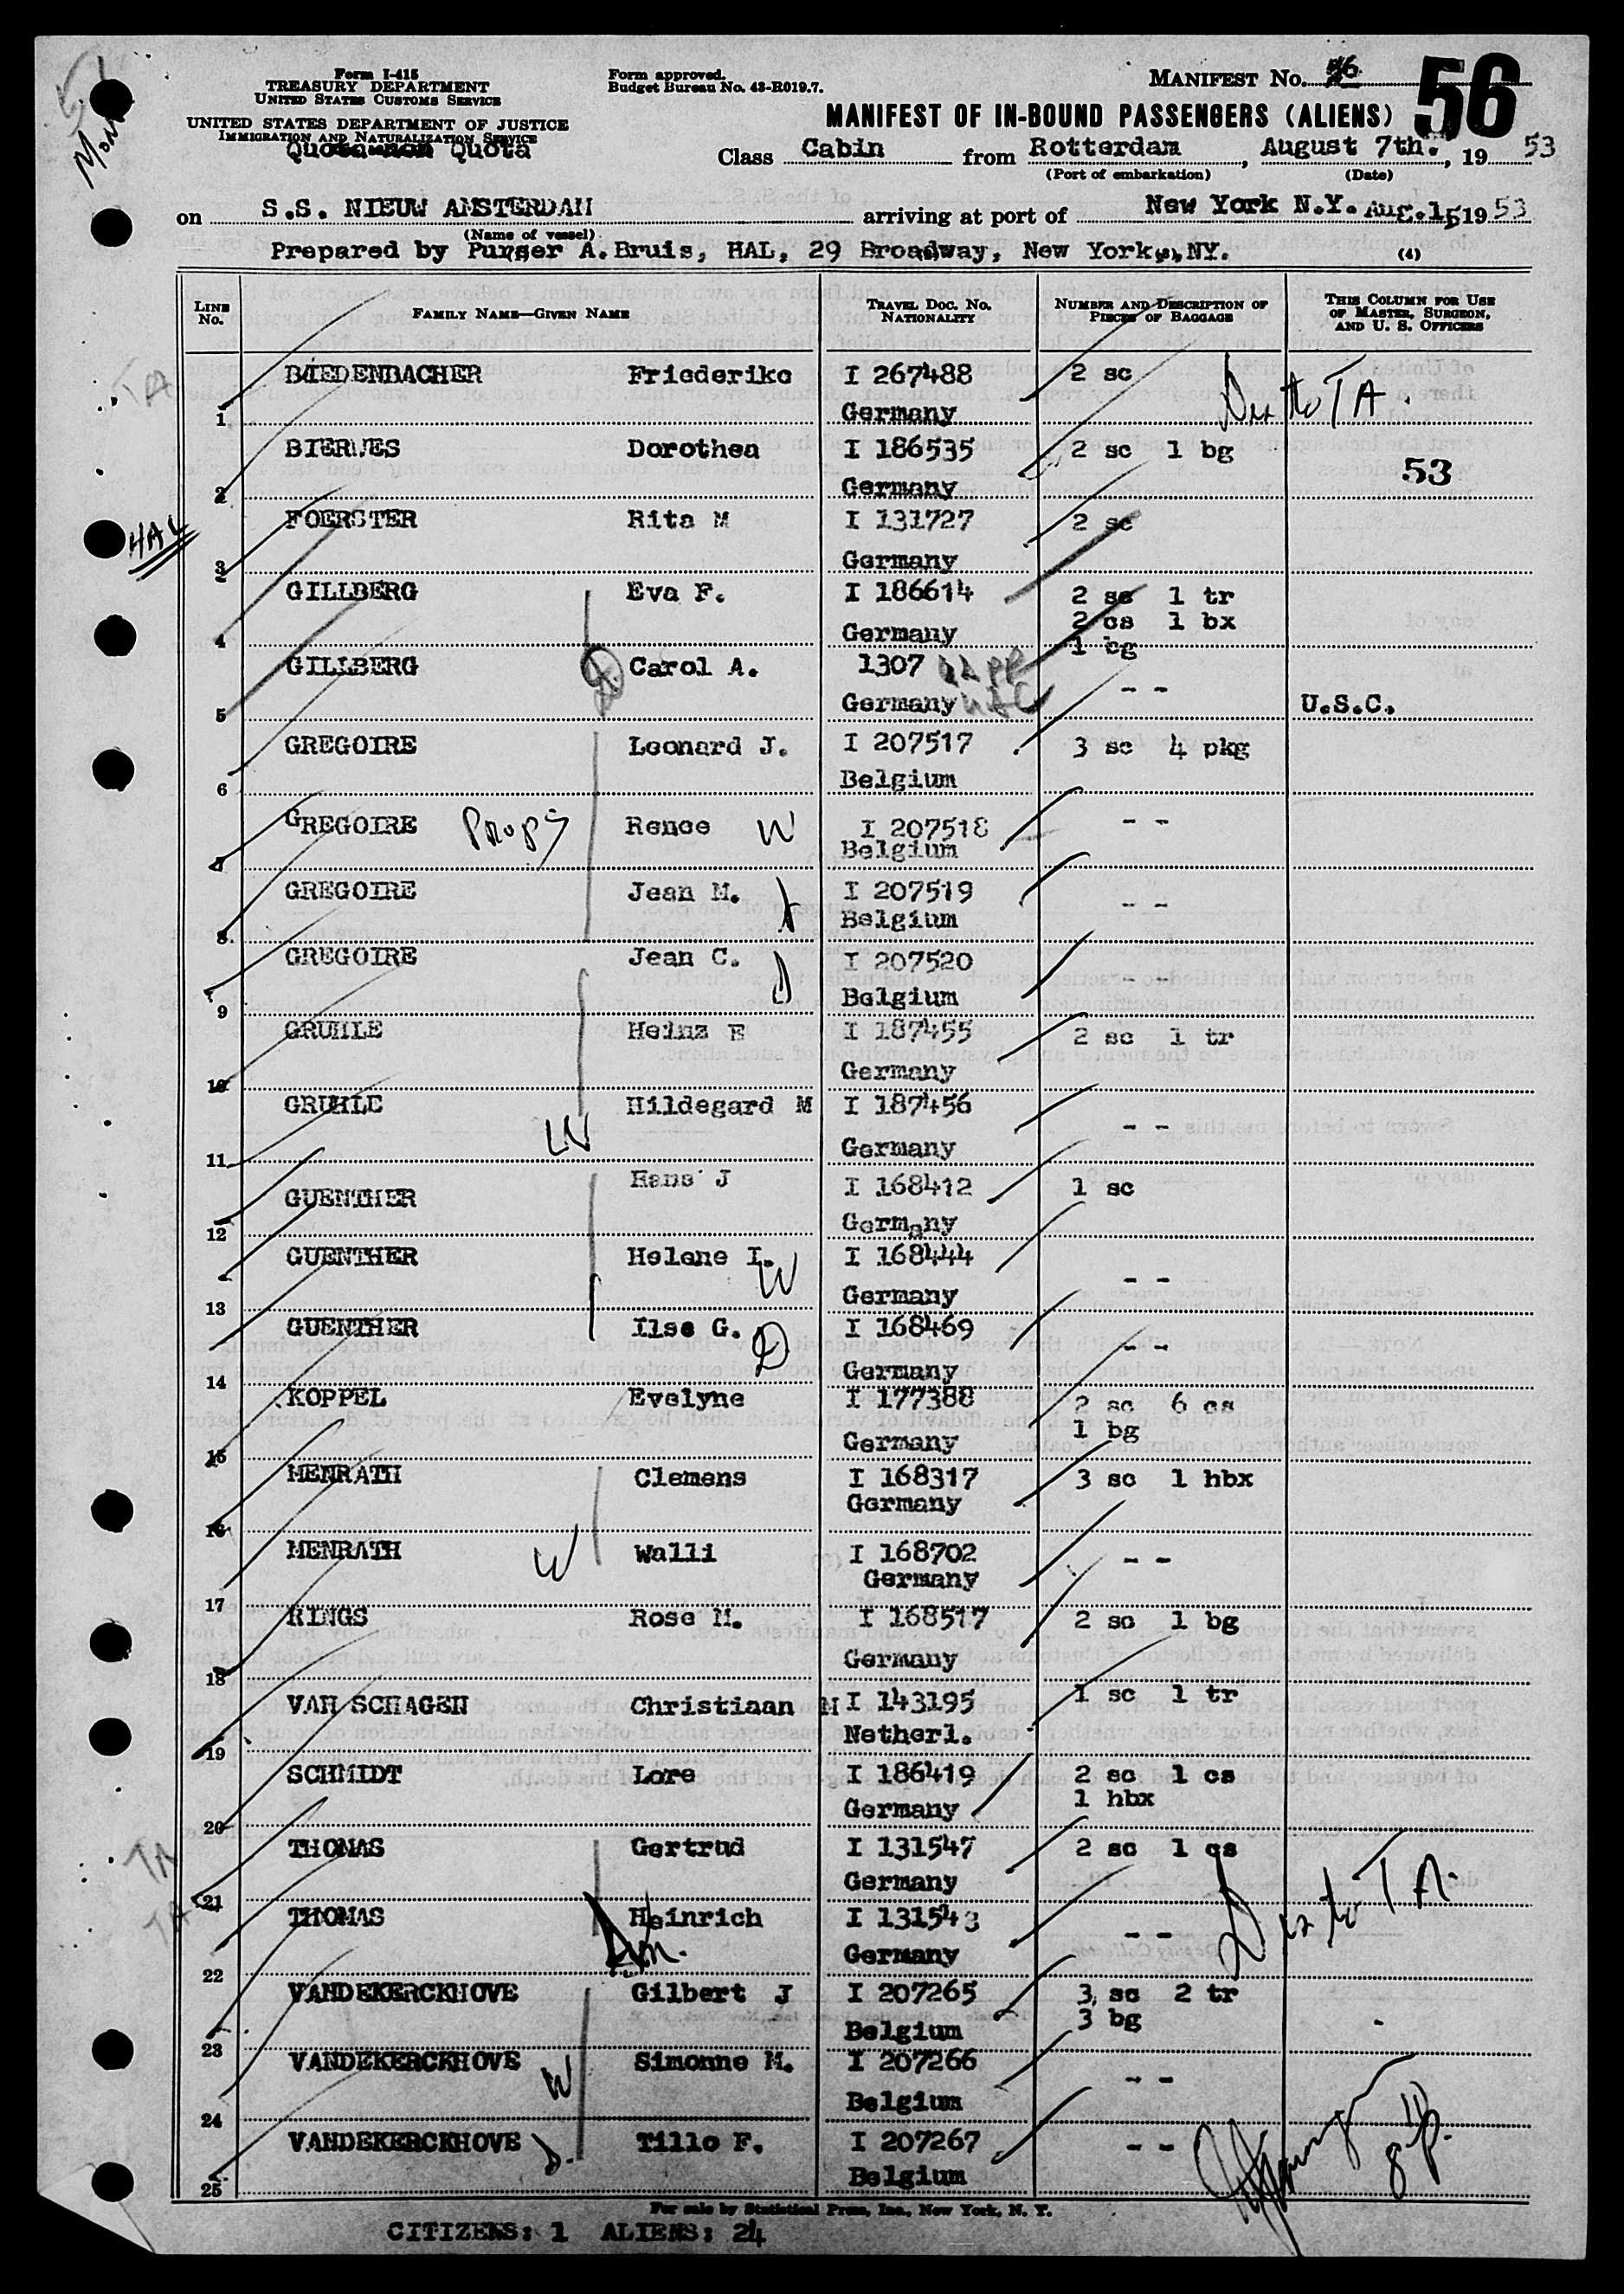 Form I-415
TREASURY DEPARTMENT
UNITED STATES CUSTOMS SERVICE
UNITED STATES DEPARTMENT OF JUSTICE
IMMIGRATION AND NATURALIZATION SERVICE
Quota non Quota
Form approved.
Budget Bureau No. 43-R019.7.
MANIFEST No. 56
MANIFEST OF IN-BOUND PASSENGERS (ALIENS)
Class Cabin from Rotterdam, August 7th., 1953
(Port of embarkation) (Date)
on S.S. NIEUW AMSTERDAM arriving at port of New York N.Y. Aug. 15 1953
(Name of vessel)
Prepared by Purser A.Bruis, HAL, 29 Broadway, New York, NY. (4)
LINE No. FAMILY NAME—GIVEN NAME TRAVEL DOC. NO. NATIONALITY NUMBER AND DESCRIPTION OF PIECES OF BAGGAGE THIS COLUMN FOR USE OF MASTER, SURGEON, AND U. S. OFFICERS
TA
1 BIEDENBACHER Friederike I 267488 2 sc TA
Germany
2 BIERWES Dorothea I 186535 2 sc 1 bg 53
Germany
HAL
3 FOERSTER Rita M I 131727 2 sc
Germany
4 GILLBERG Eva F. I 186614 2 sc 1 tr
Germany 2 cs 1 bx
1 bg
5 GILLBERG Carol A. 1307 - -
Germany U.S.C.
6 GREGOIRE Leonard J. I 207517 3 sc 4 pkg
Belgium
7 GREGOIRE Renee W I 207518 - -
Belgium
8 GREGOIRE Jean M. I 207519 - -
Belgium
9 GREGOIRE Jean C. D I 207520 - -
Belgium
10 GRUHLE Heinz E I 187455 2 sc 1 tr
Germany
11 GRUHLE W Hildegard M I 187456 - -
Germany
12 GUENTHER Hans J I 168412 1 sc
Germany
13 GUENTHER Helene I. W I 168444 - -
Germany
14 GUENTHER Ilse G. D I 168469 - -
Germany
15 KOPPEL Evelyne I 177388 2 sc 6 cs
Germany 1 bg
16 MENRATH Clemens I 168317 3 sc 1 hbx
Germany
17 MENRATH W Walli I 168702 - -
Germany
18 RINGS Rose M. I 168517 2 sc 1 bg
Germany
19 VAN SCHAGEN Christiaan M I 143195 1 sc 1 tr
Netherl.
20 SCHMIDT Lore I 186419 2 sc 1 cs
Germany 1 hbx
TA
21 THOMAS Gertrud I 131547 2 sc 1 cs
Germany
TA
22 THOMAS Heinrich I 131543 - - to TA.
Germany
23 VANDEKERCKHOVE Gilbert J I 207265 3 sc 2 tr
Belgium 3 bg
24 VANDEKERCKHOVE W Simonne M. I 207266 - -
Belgium
25 VANDEKERCKHOVE D. Tillo F. I 207267 - -
Belgium
For sale by Statistical Press, Inc., New York, N. Y.
CITIZENS: 1 ALIENS: 24